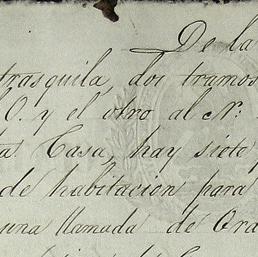 De la
trasquila, dos tramos
O. y el otro al N.
Casa, hay siete
de habitacion para
una llamada de Gra